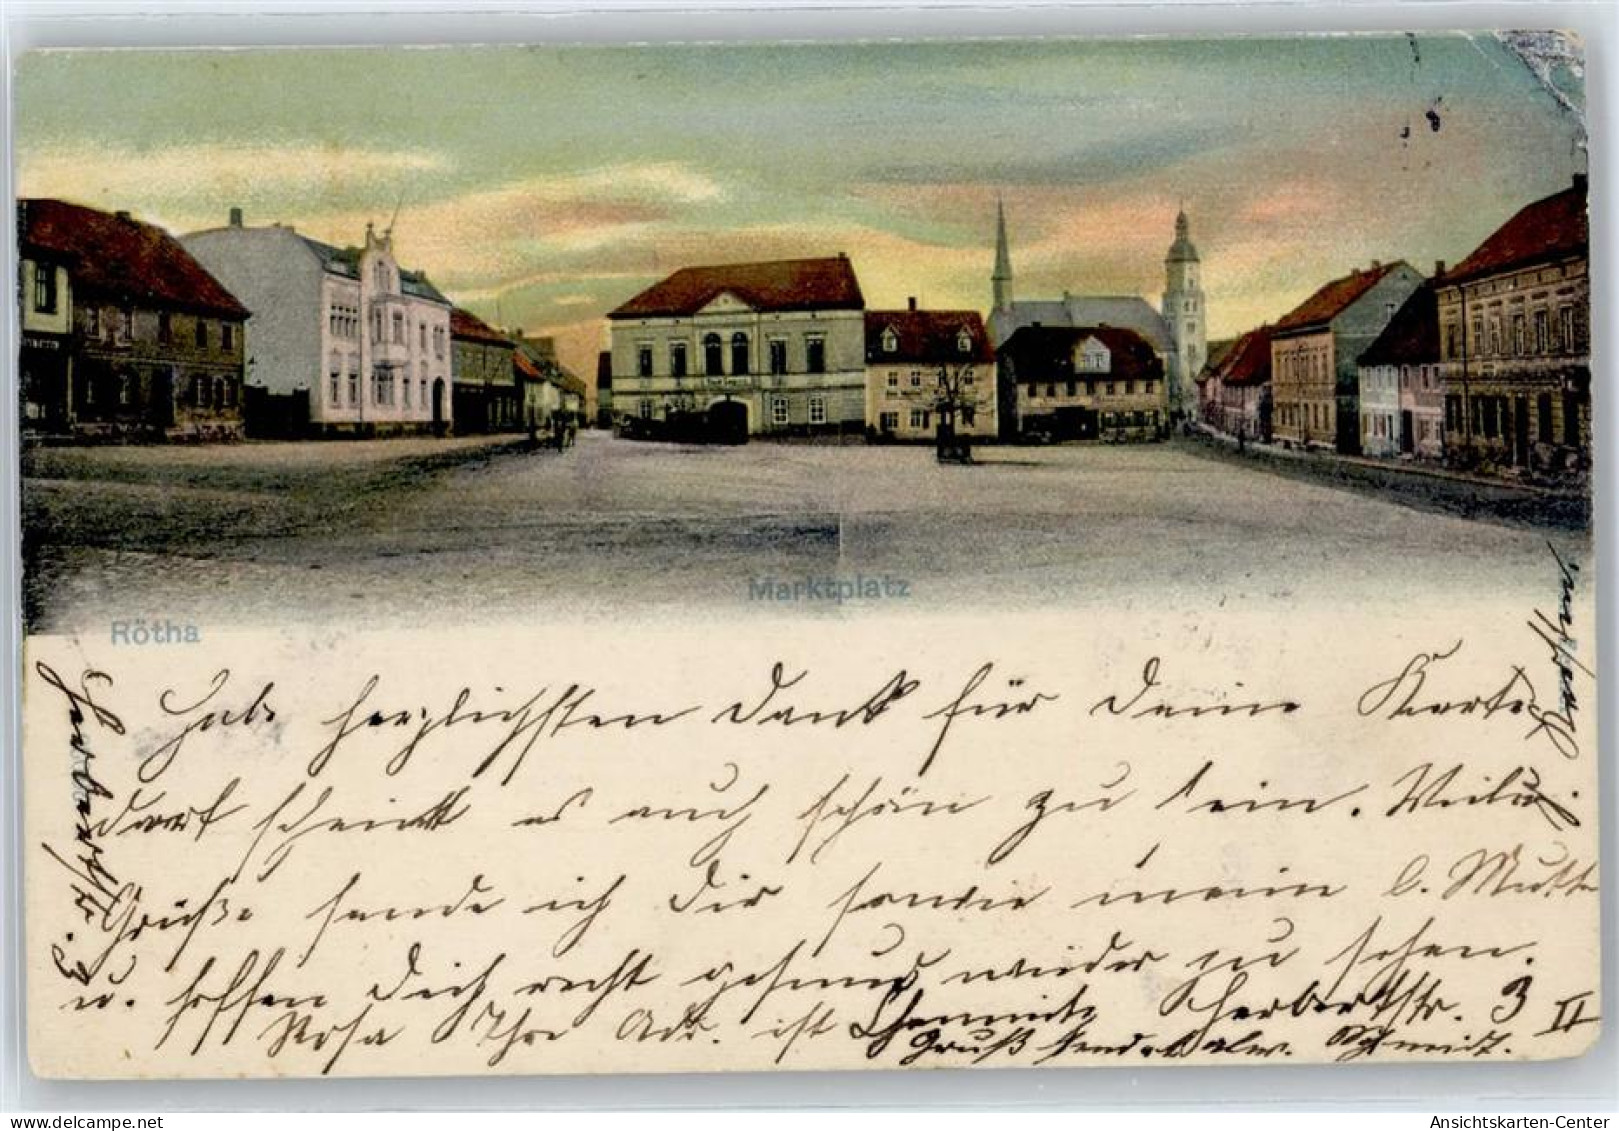 Marktplatz
Rötha
Habe herzlichsten Dank für Deine Karte,
dort scheint es auch schön zu sein.
Grüße sende ich Dir sowie meine l. Mutter
u. hoffen Dich recht gesund wieder zu sehen.
Rosa Ihre Adr. ist Chemnitz Herbertstr. 3 II
Gruß sendet Schmidt.
Herbertstr. 3
Ansichtskarten-Center
delcampe.net